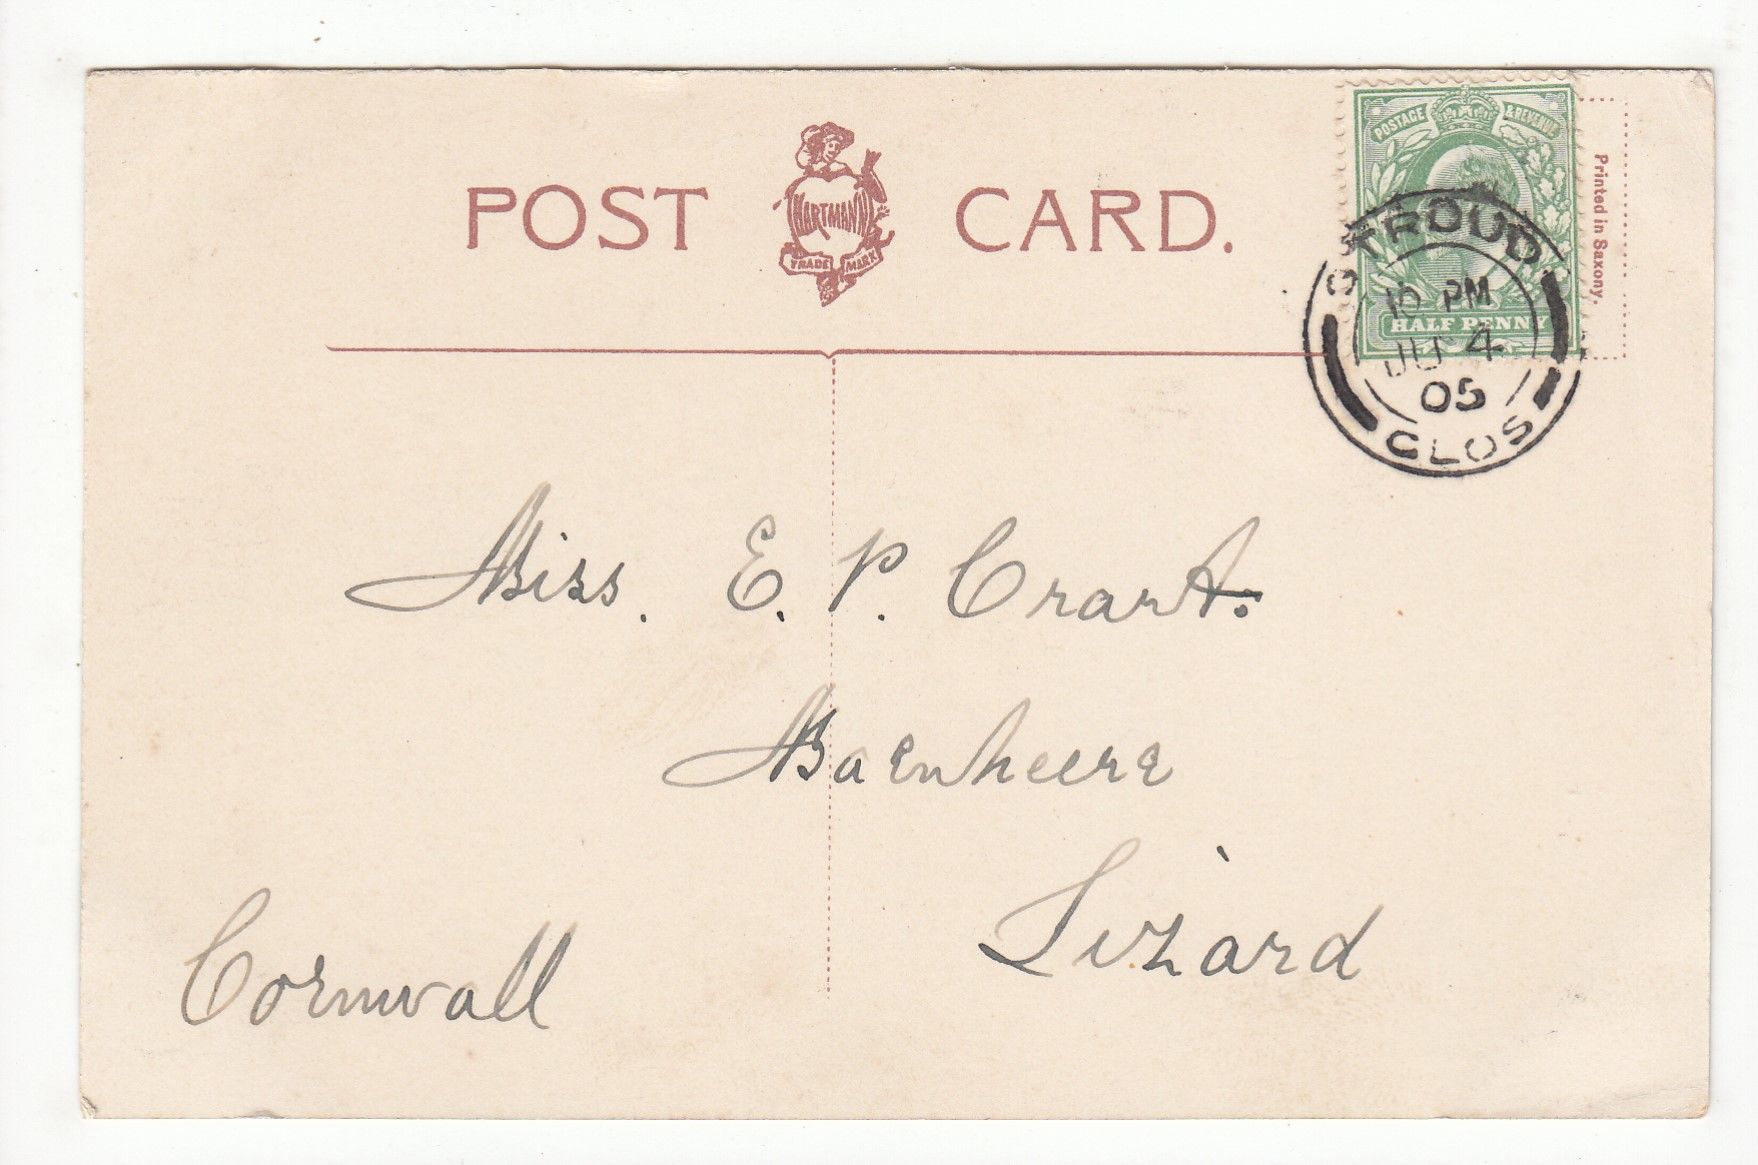 POST CARD.
HARTMANN
TRADE MARK
POSTAGE & REVENUE
HALF PENNY
Printed in Saxony.
STROUD
10 PM
4
05
GLOS
Miss. E. P.
Lizard
Cornwall